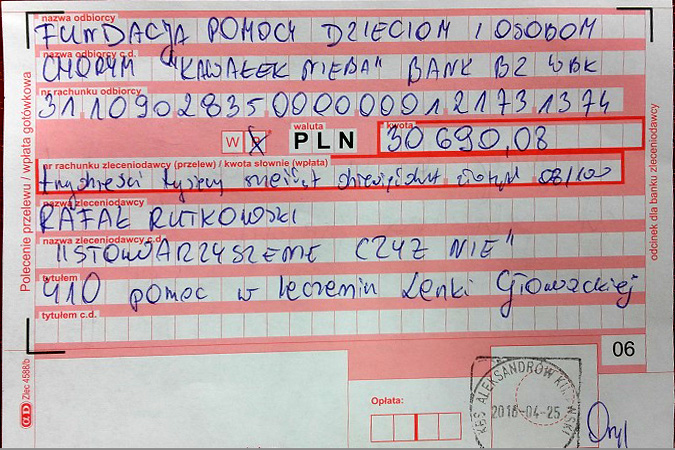 nazwa odbiorcy
FUNDACJA POMOCY DZIECIOM I OSOBOM
nazwa odbiorcy c.d.
CHORYM "KAWAŁEK NIEBA" BANK BZ WBK
nr rachunku odbiorcy
31109028350000000121731374
W P waluta PLN kwota 30 690,08
nr rachunku zleceniodawcy (przelew) / kwota słownie (wpłata)
trzydzieści tysięcy sześćset dziewięćdziesiąt złotych 08/100
nazwa zleceniodawcy
RAFAŁ RUTKOWSKI
nazwa zleceniodawcy c.d.
"STOWARZYSZENIE CZYŻ NIE"
tytułem
410 pomoc w leczeniu Lenki Głowackiej
tytułem c.d.
06
Opłata:
KBS ALEKSANDRÓW KUJAWSKI
2018-04-25
Polecenie przelewu / wpłata gotówkowa
odcinek dla banku zleceniodawcy
Zlec 4588/b